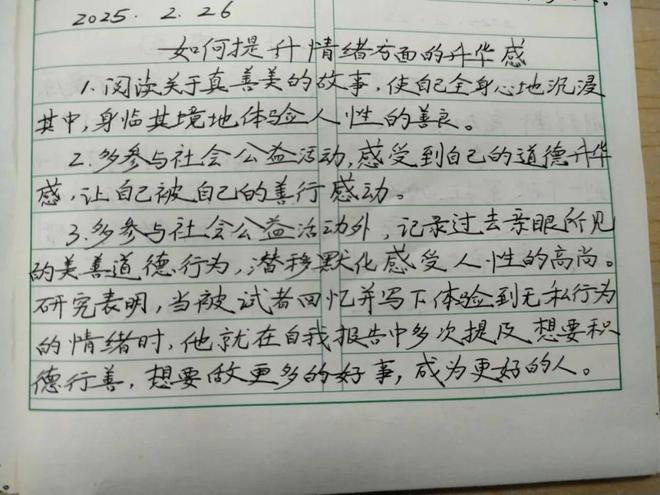 2025. 2. 26
如何提升情绪方面的升华感
1. 阅读关于真善美的故事，使自己全身心地沉浸
其中，身临其境地体验人性的善良。
2. 多参与社会公益活动，感受到自己的道德升华
感，让自己被自己的善行感动。
3. 多参与社会公益活动外，记录过去亲眼所见
的美善道德行为，潜移默化感受人性的高尚。
研究表明，当被试者回忆并写下体验到无私行为
的情绪时，他就在自我报告中多次提及想要积
德行善，想要做更多的好事，成为更好的人。